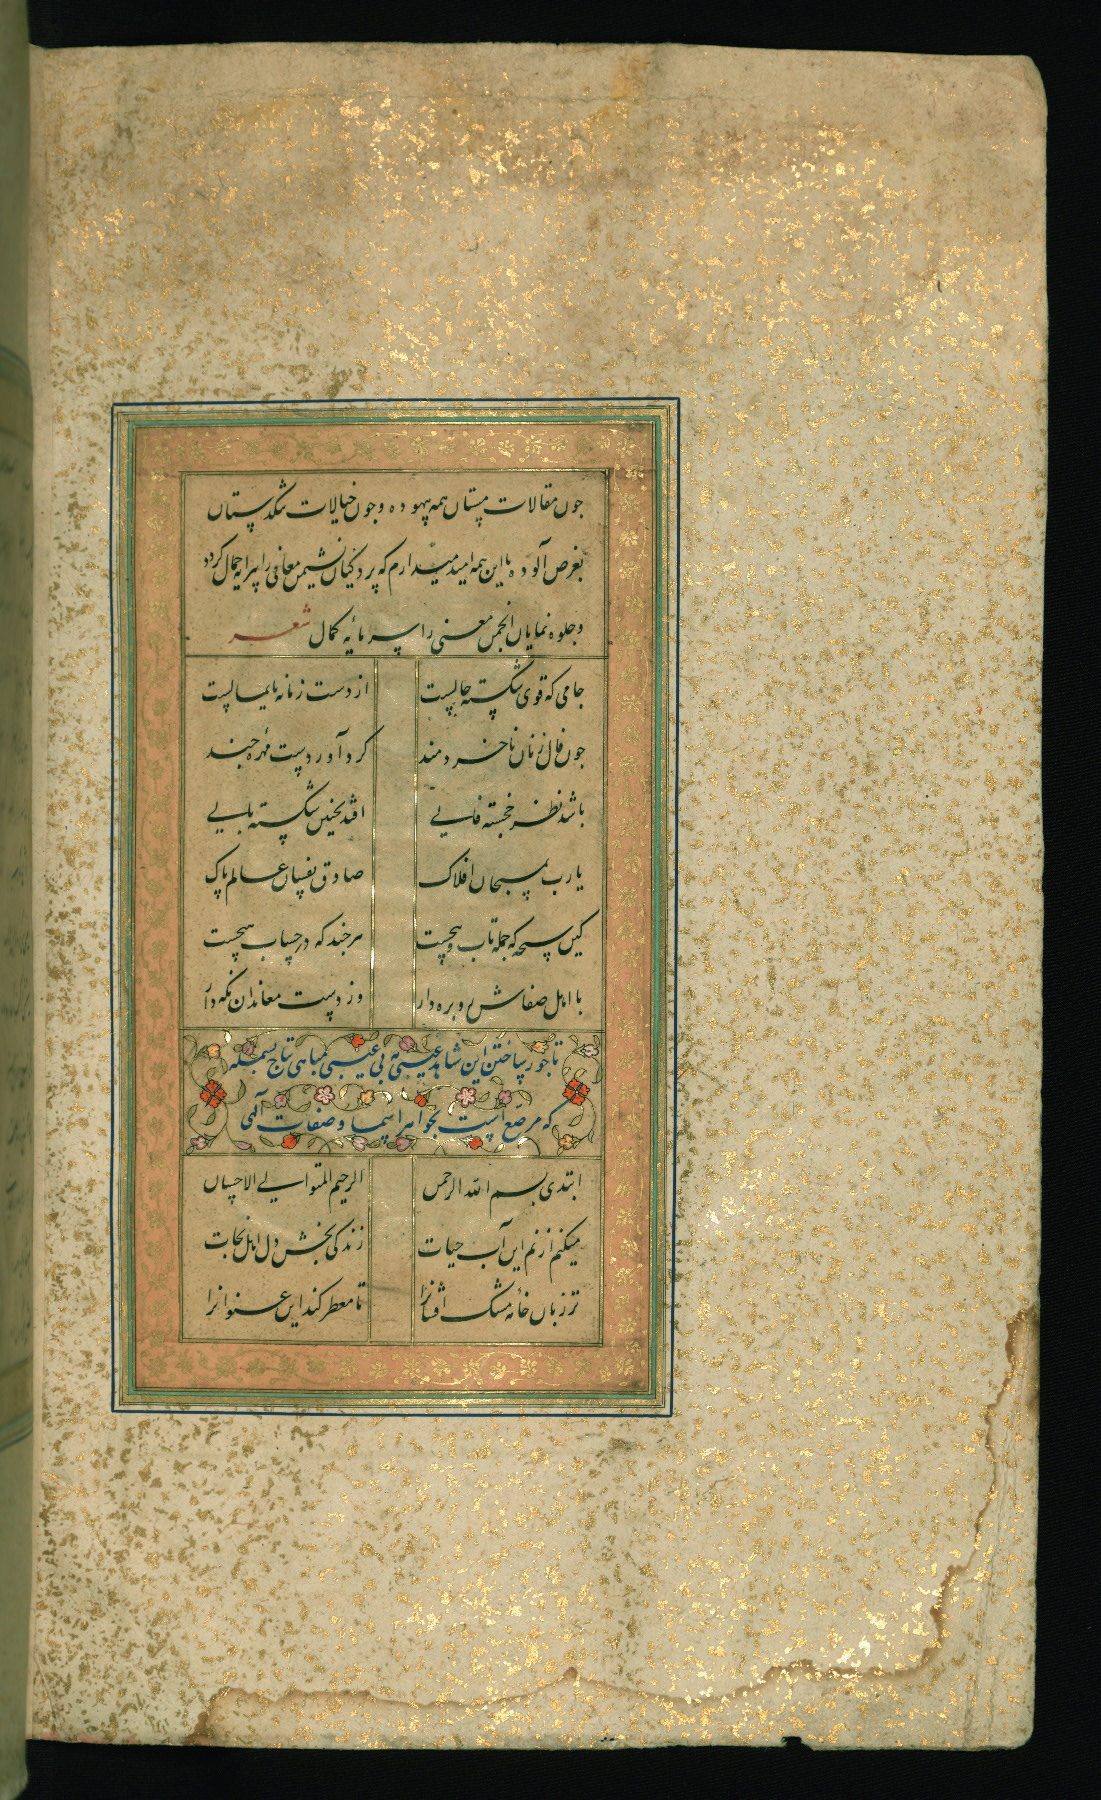 چون مقالات مستان همه بیهوده و چون خیالات تنگدستان
بغرض آلوده با این همه امید میدارم که پردگیان نشیمن معانی را پیرایه جمال گردد
و جلوه نمایان انجمن معنی را سرمایه کمال شعر
جامی که قوی شکسته حالیست از دست زمانه پایمالیست
چون فال زنان ناخردمند کرد آورده ست مهره چند
باشد نظر خجسته فالی افتد بچنین شکسته بالی
یارب بمسبحان افلاک صادق نفسان عالم پاک
کین سبحه که جمله تاب و پیچست هر چند که در حساب هیچست
با اهل صفاش روبره دار وز دست معاندان نگه دار
تاجور ساختن این شاهد غیبی بی عیبی بمباهی تاج بسمله
که مرصع است بجواهر اسما و صفات الهی
ابتدی بسم الله الرحمن الرحیم المتوالی الاحسان
میکنم از نم این آب حیات زندگی بخش دل اهل نجات
تر زبان خامه مشک افشانرا تا معطر کند این عنوانرا